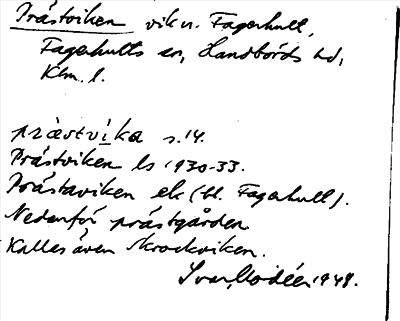 Prästviken vik v. Fagerhult,
Fagerhults sn, Handbörds hd,
Klm. l.
prästvika s. 14.
Prästviken ls 1930-33.
Prästaviken ek (bl. Fagerhult).
Nedanför prästgården
Kallas även Krockviken.
Ivar Modéer 1948.